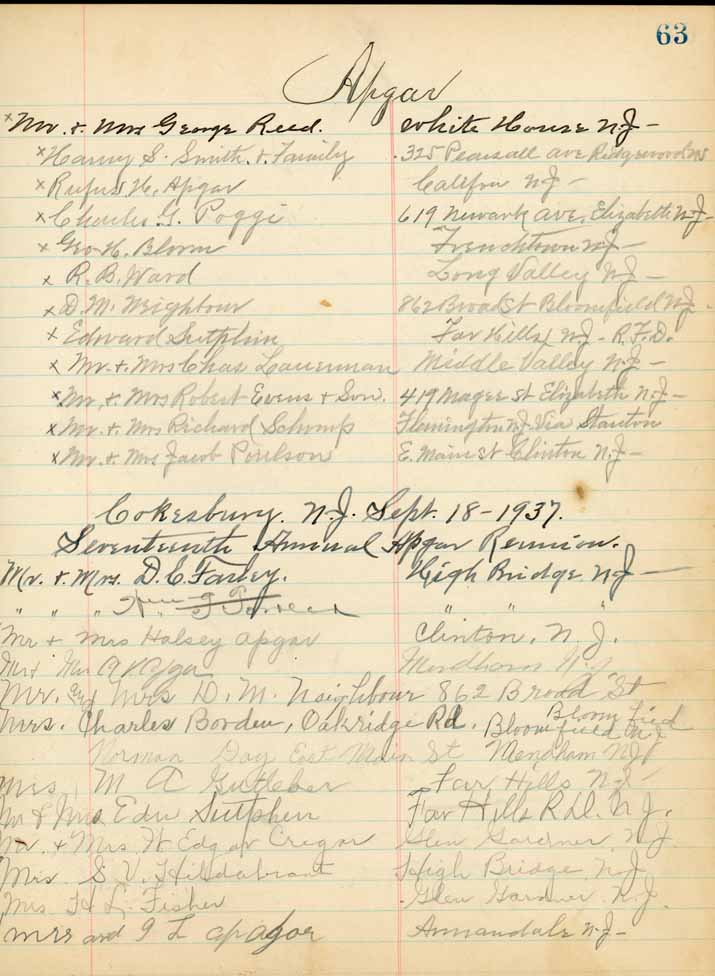 63
Apgar
x Mr. & Mrs George Reed. White House N.J -
x Harry S. Smith & Family 325 Pearsall ave Ridgewood N.J
x Rufus H. Apgar Califon N.J -
x Charles G. Poggi 619 Newark ave, Elizabeth N.J -
x Geo. H. Bloom Frenchtown N.J -
x R. B. Ward Long Valley N.J -
x D. M. Neighbour 862 Broad St Bloomfield N.J.
x Edward Sutphin Far Hills N.J - R.F.D.
x Mr. & Mrs Chas Lauerman Middle Valley N.J -
x Mr. & Mrs Robert Evens & Son. 419 Magee st Elizabeth N.J -
x Mr. & Mrs Richard Schomp Flemington N.J. Via Stanton
x Mr. & Mrs Jacob Poulson E. Main st Clinton N.J -
Cokesbury. N.J. Sept. 18-1937.
Seventeenth Annual Apgar Reunion.
Mr. & Mrs. D. C. Farley. High Bridge N.J -
" " " " " "
Mr & Mrs Halsey Apgar Clinton, N.J.
Mr & Mrs Mendham N.J
Mr. and Mrs D. M. Neighbour 862 Broad St
Bloomfield
Mrs. Charles Borden, Oakridge Rd. Bloomfield N.J.
Norman Day East Main St Mendham N.J
Mrs. M A Gutleber Far Hills N.J -
Mr & Mrs Edw Sutphen Far Hills R.D. N.J.
Mr. & Mrs W Edgar Cregar Glen Gardner N.J.
Mrs S. V. Hildabrant High Bridge N.J.
Mrs H L. Fisher Glen Gardner N.J.
mrs and I L apagor Annandale N.J -